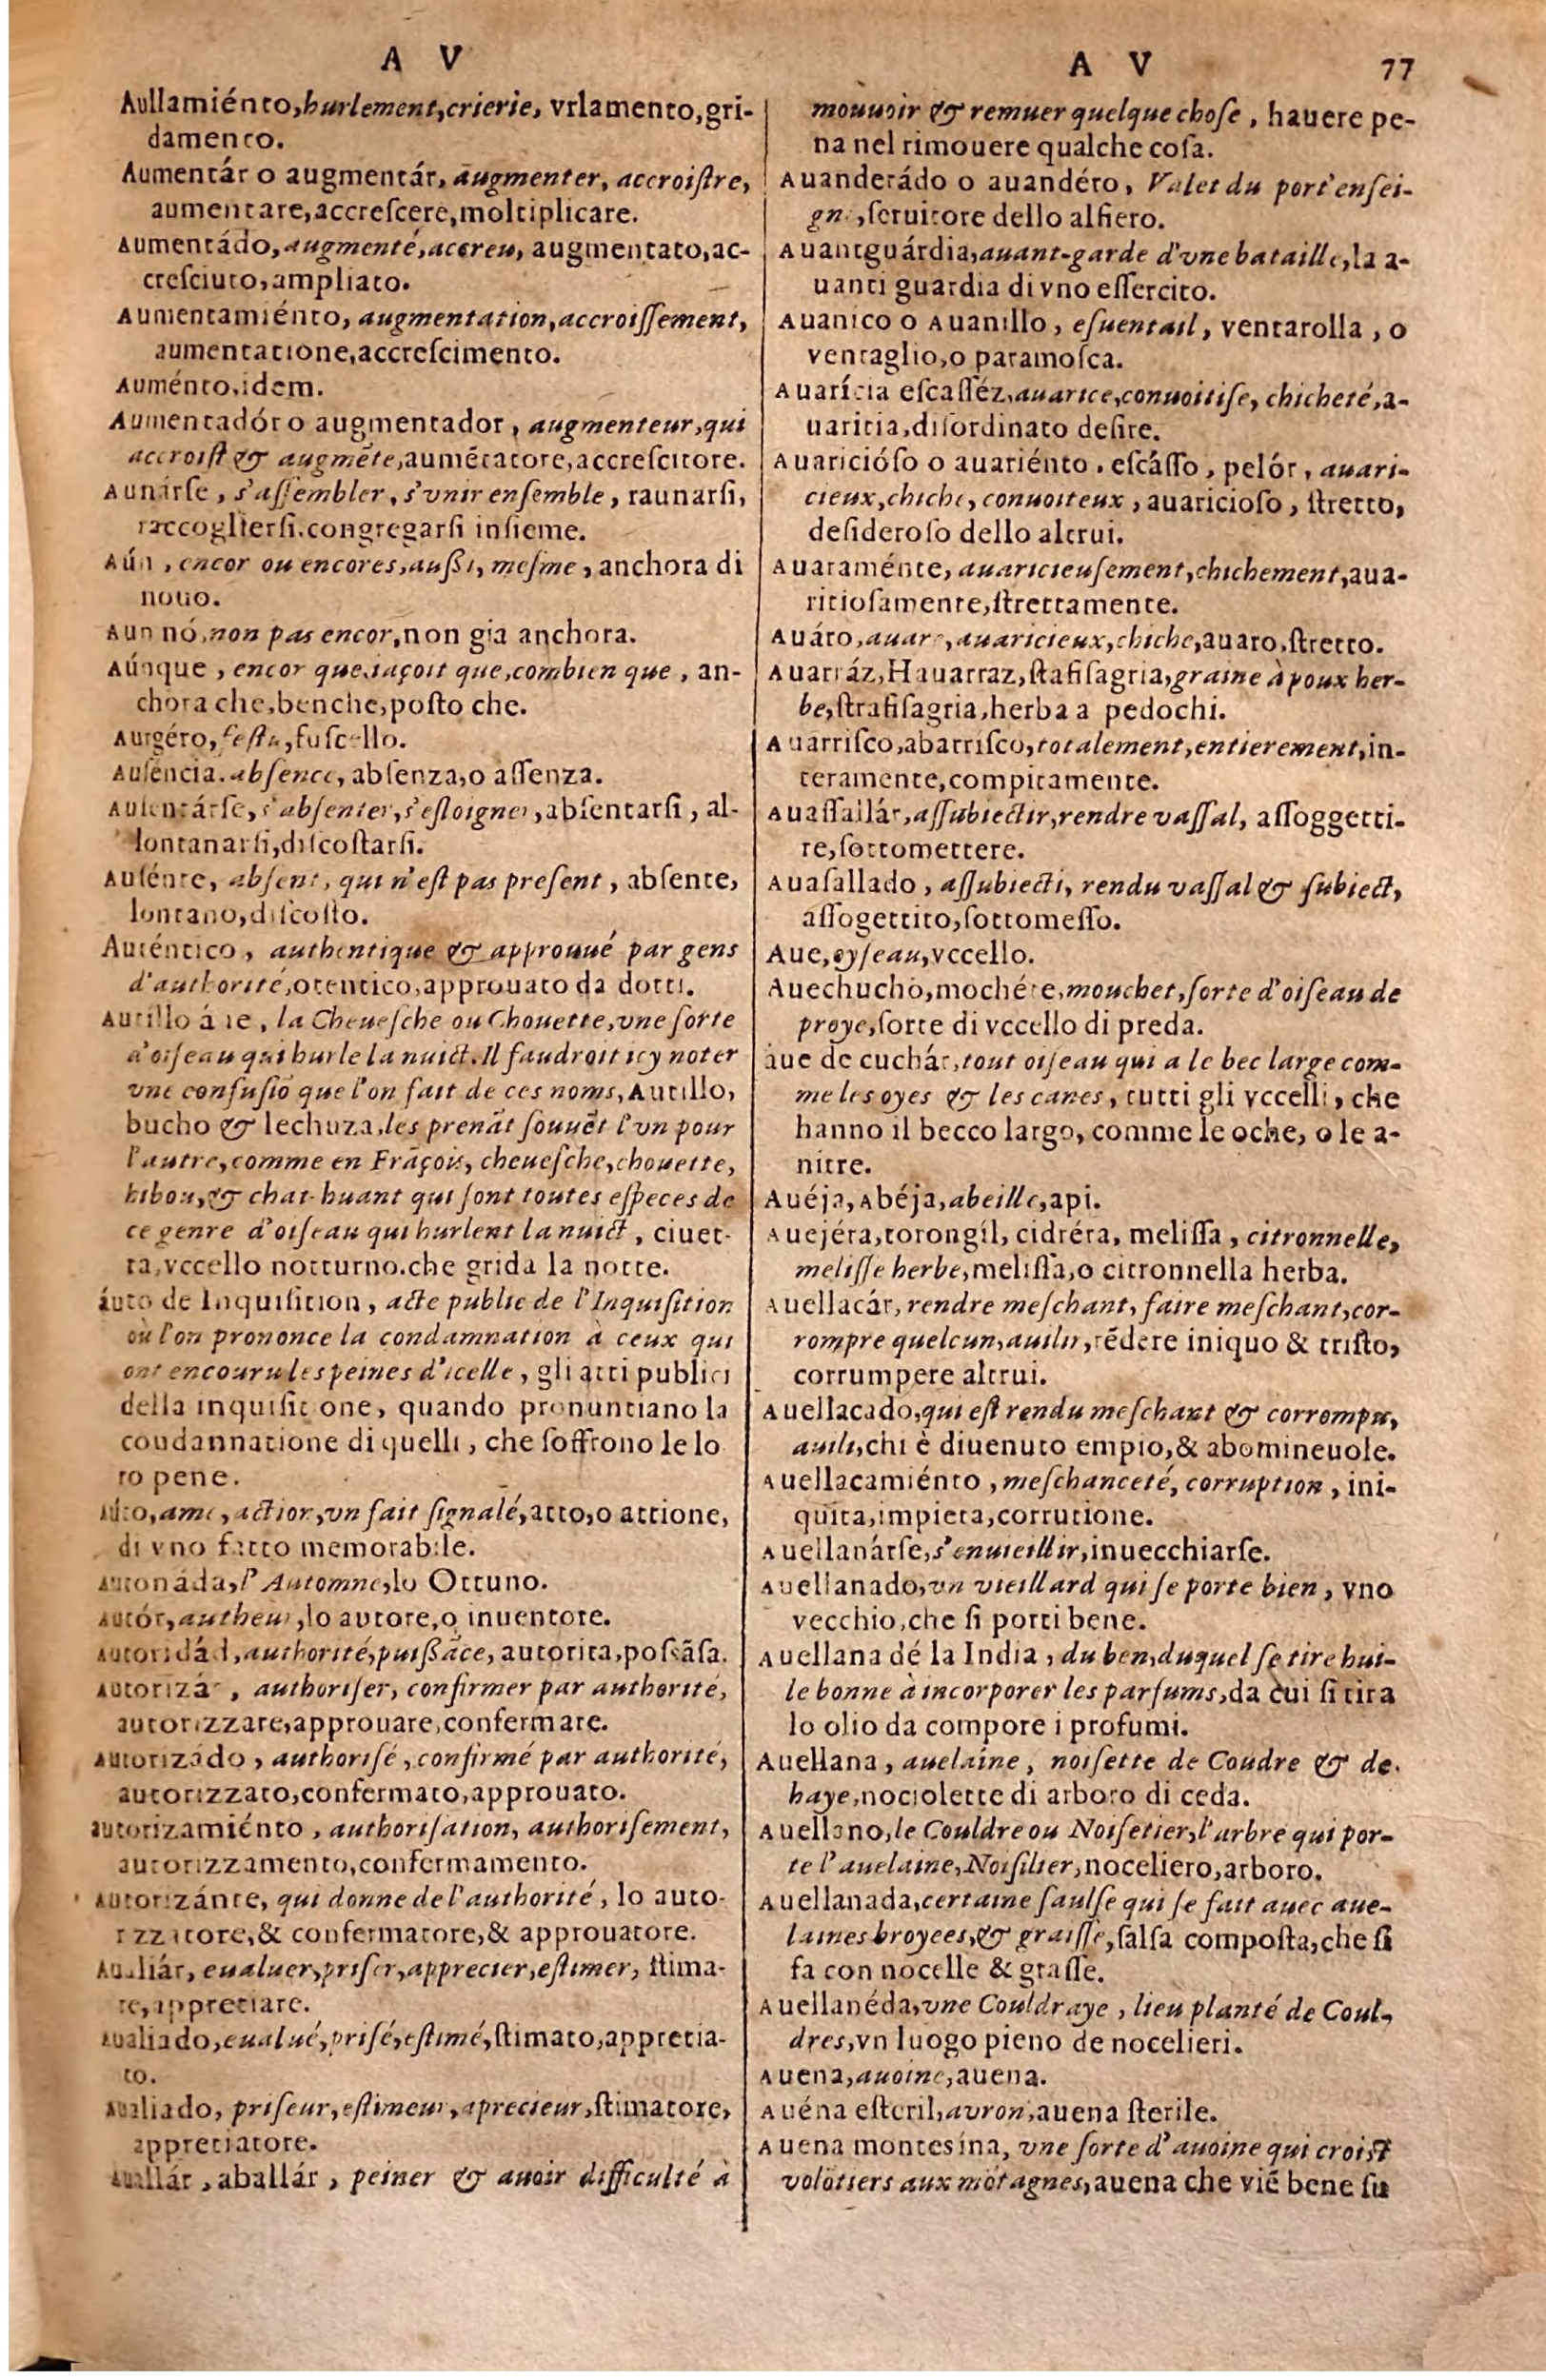 A V
Aullamiénto,hurlement,crierie, vrlamento,gri-
damento.
Aumentár o augmentár, augmenter, accroiſtre,
aumentare,accreſcere,moltiplicare.
Aumentádo,augmenté,accreu, augmentato,ac-
creſciuto,ampliato.
Aumentamiénto, augmentation,accroiſſement,
aumentatione,accreſcimento.
Auménto,idem.
Aumentadór o augmentador, augmenteur,qui
accroiſt & augmēte,aumētatore,accreſcitore.
Aunárſe, s'aſſembler, s'vnir enſemble, raunarſi,
raccoglierſi.congregarſi inſieme.
Aún, encor ou encores,außi, meſme, anchora di
nouo.
Aun nó,non pas encor,non gia anchora.
Aúnque, encor que,iaçoit que,combien que, an-
chora che,benche,poſto che.
Aurgéro, feſtu,fuſcello.
Auſéncia.abſence, abſenza,o aſſenza.
Auſentárſe,s'abſenter,s'eſloigner,abſentarſi, al-
lontanarſi,diſcoſtarſi.
Auſénte, abſent, qui n'eſt pas preſent, abſente,
lontano,diſcoſto.
Auténtico, authentique & approuué par gens
d'authorité,otentico,approuato da dotti.
Autillo áue, la Cheueſche ou Chouette,vne ſorte
d'oiſeau qui hurle la nuict.Il faudroit icy noter
vne confuſiō que l'on fait de ces noms, Autillo,
bucho & lechuza,les prenāt ſouuēt l'vn pour
l'autre,comme en Frāçois, cheueſche,chouette,
hibou,& chat-huant qui ſont toutes eſpeces de
ce genre d'oiſeau qui hurlent la nuict, ciuet-
ta,vccello notturno.che grida la notte.
áuto de Inquiſition, acte public de l'Inquiſition
où l'on prononce la condamnation à ceux qui
ont encouru les peines d'icelle, gli atti publici
della inquiſitione, quando pronuntiano la
coudannatione di quelli, che ſoffrono le lo
ro pene.
Auto,acte, action,vn fait ſignalé,atto,o attione,
di vno fatto memorabile.
Autonáda,l'Automne,lo Ottuno.
Autór,autheur,lo autore,o inuentore.
Autoridád,authorité,puißāce, autorita,poſsāſa.
Autorizár, authoriſer, confirmer par authorité,
autorizzare,approuare,confermare.
Autorizádo, authoriſé, confirmé par authorité,
autorizzato,confermato,approuato.
autorizamiénto, authoriſation, authoriſement,
autorizzamento,confermamento.
Autorizánte, qui donne de l'authorité, lo auto-
rizzatore,& confermatore,& approuatore.
Aualiár, eualuer,priſer,apprecier,eſtimer, ſtima-
re,appretiare.
Aualiado,eualué,priſé,eſtimé,ſtimato,appretia-
to.
Aualiado, priſeur,eſtimeur,aprecieur,ſtimatore,
appretiatore.
Auallár, aballár, peiner & auoir difficulté à
A V 77
mouuoir & remuer quelque choſe, hauere pe-
na nel rimouere qualche coſa.
Auanderádo o auandéro, Valet du port'enſei-
gne,ſeruitore dello alfiero.
Auantguárdia,auant-garde d'vne bataille,la a-
uanti guardia di vno eſſercito.
Auanico o Auanillo, eſuentail, ventarolla, o
ventaglio,o paramoſca.
Auarícia eſcaſſéz,auarice,conuoitiſe, chicheté,a-
uaritia,diſordinato deſire.
Auaricióſo o auariénto, eſcáſſo, pelór, auari-
cieux,chiche, conuoiteux, auaricioſo, ſtretto,
deſideroſo dello altrui.
Auaraménte, auaricieuſement,chichement,aua-
ritioſamente,ſtrettamente.
Auáro,auare,auaricieux,chiche,auaro,ſtretto.
Auarráz,Hauarraz,ſtafiſagria,graine à poux her-
be,ſtrafiſagria,herba a pedochi.
Auarriſco,abarriſco,totalement,entierement,in-
teramente,compitamente.
Auaſſallár,aſſubiectir,rendre vaſſal, aſſoggetti-
re,ſottomettere.
Auaſallado, aſſubiecti, rendu vaſſal & ſubiect,
aſſogettito,ſottomeſſo.
Aue,oyſeau,vccello.
Auechucho,mochéte,mouchet,ſorte d'oiſeau de
proye,ſorte di vccello di preda.
áue de cuchár,tout oiſeau qui a le bec large com-
me les oyes & les canes, tutti gli vccelli, che
hanno il becco largo, comme le oche, o le a-
nitre.
Auéja,Abéja,abeille,api.
Auejéra,torongíl, cidréra, meliſſa, citronnelle,
meliſſe herbe,meliſſa,o citronnella herba.
Auellacár, rendre meſchant, faire meſchant,cor-
rompre quelcun,auilir,rēdere iniquo & triſto,
corrumpere altrui.
Auellacado,qui eſt rendu meſchant & corrompu,
auili,chi è diuenuto empio,& abomineuole.
Auellacamiénto, meſchanceté, corruption, ini-
quita,impieta,corrutione.
Auellanárſe,s'enuieillir,inuecchiarſe.
Auellanado,vn vieillard qui ſe porte bien, vno
vecchio,che ſi porti bene.
Auellana dé la India, du ben,duquel ſe tire hui-
le bonne à incorporer les parfums,da cui ſi tira
lo olio da compore i profumi.
Auellana, auelaine, noiſette de Coudre & de
haye,nociolette di arboro di ceda.
Auellano,le Couldre ou Noiſetier,l'arbre qui por-
te l'auelaine,Noiſilier,noceliero,arboro.
Auellanada,certaine ſaulſe qui ſe fait auec aue-
laines broyees,& graiſſe,ſalſa compoſta,che ſi
fa con nocelle & graſſe.
Auellanéda,vne Couldraye, lieu planté de Coul-
dres,vn luogo pieno de nocelieri.
Auena,auoine,auena.
Auéna eſteril,avron,auena ſterile.
Auena montesína, vne ſorte d'auoine qui croiſt
volōtiers aux mōtagnes,auena che viē bene ſu